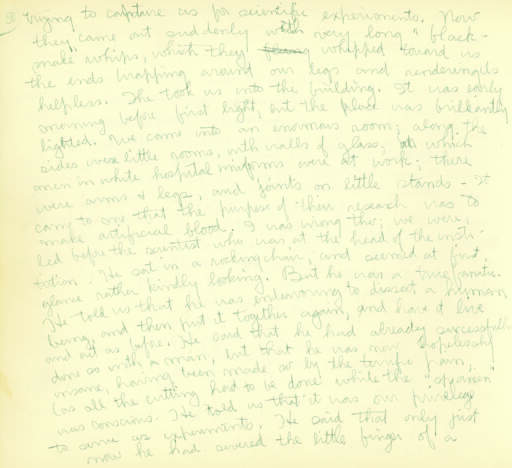 ③ trying to capture us for scientific experiments. Now
they came out suddenly with very long "black-
snake" whips, which they whipped toward us
the ends wrapping around our legs and rendering us
helpless. She took us into the building. It was early
morning before first light, but the place was brilliantly
lighted. We came into an enormous room; along the
sides were little rooms, with walls of glass, at which
men in white hospital uniforms were at work; there
were arms & legs, and joints on little stands - It
came to me that the purpose of their research was to
make artificial blood. I was wrong tho'; we were
led before the scientist who was at the head of the insti-
tution. He sat in a rocking chair, and seemed at first
glance rather kindly looking. But he was a true fanatic.
He told us that he was endeavouring to dissect a human
being, and then put it together again, and have it live
and act as before. He said that he had already successfully
done so with a man, but that he was now hopelessly
insane, having been made so by the terrific pain,
(as all the cutting had to be done while the "specimen"
was conscious. He told us that it was our privilege
to serve as experiments. He said that only just
now he had severed the little finger of a